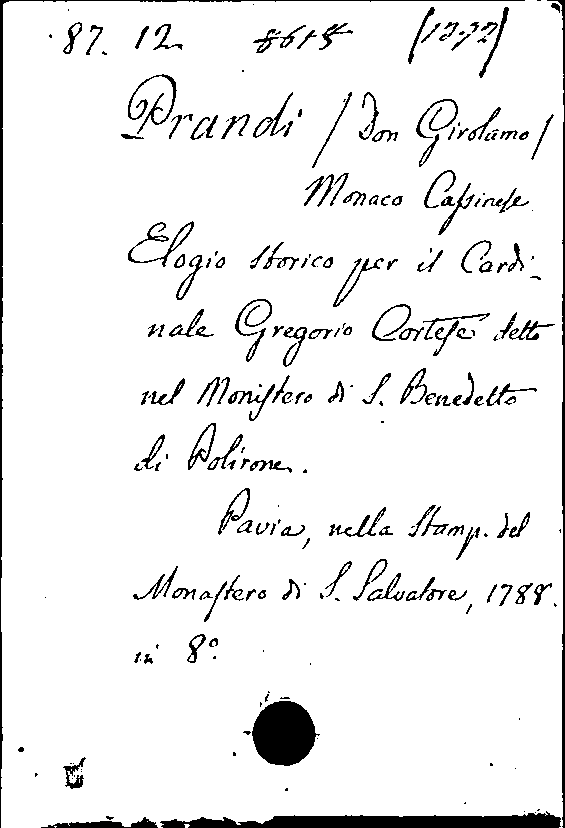 87. 12 8615 (1372)
Prandi / Don Girolamo /
Monaco Caſsineſe
Elogio storico per il Cardi-
nale Gregorio Corteſe detto
nel Moniſtero di S. Benedetto
di Polirone.
Pavia, nella Stamp. del
Monaſtero di S. Salvatore, 1788.
in 8º.